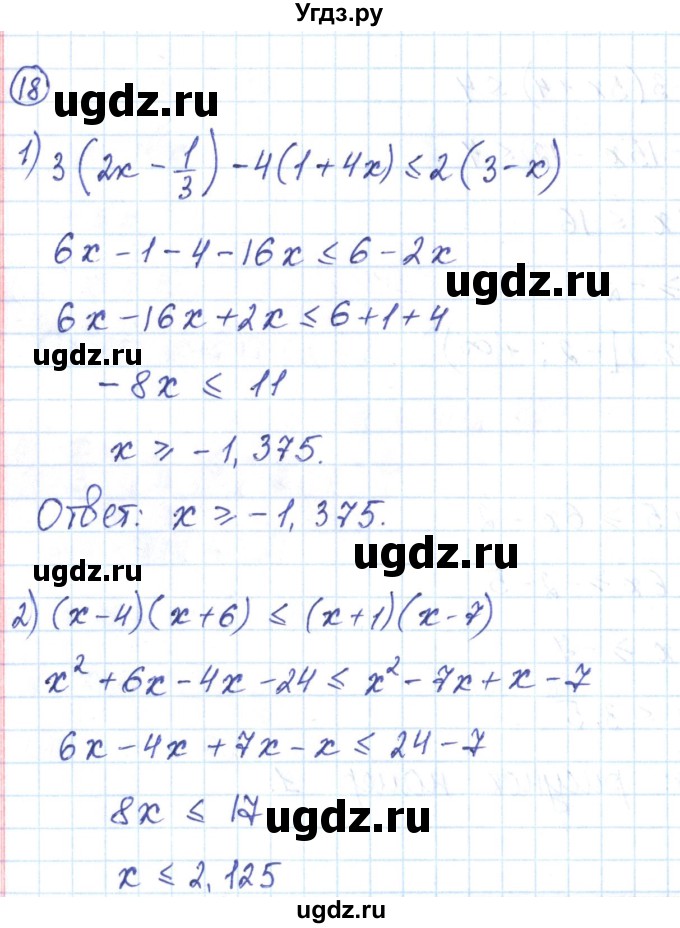 Угдз.ру
18
ugdz.ru
1) 3(2x - 1/3) - 4(1 + 4x) ≤ 2(3 - x)
6x - 1 - 4 - 16x ≤ 6 - 2x
ugdz.ru
6x - 16x + 2x ≤ 6 + 1 + 4
ugdz.ru
- 8x ≤ 11
x ≥ - 1,375.
Ответ: x ≥ - 1,375.
ugdz.ru
ugdz.ru
2) (x - 4)(x + 6) ≤ (x + 1)(x - 7)
x² + 6x - 4x - 24 ≤ x² - 7x + x - 7
6x - 4x + 7x - x ≤ 24 - 7
8x ≤ 17
ugdz.ru
x ≤ 2,125
ugdz.ru